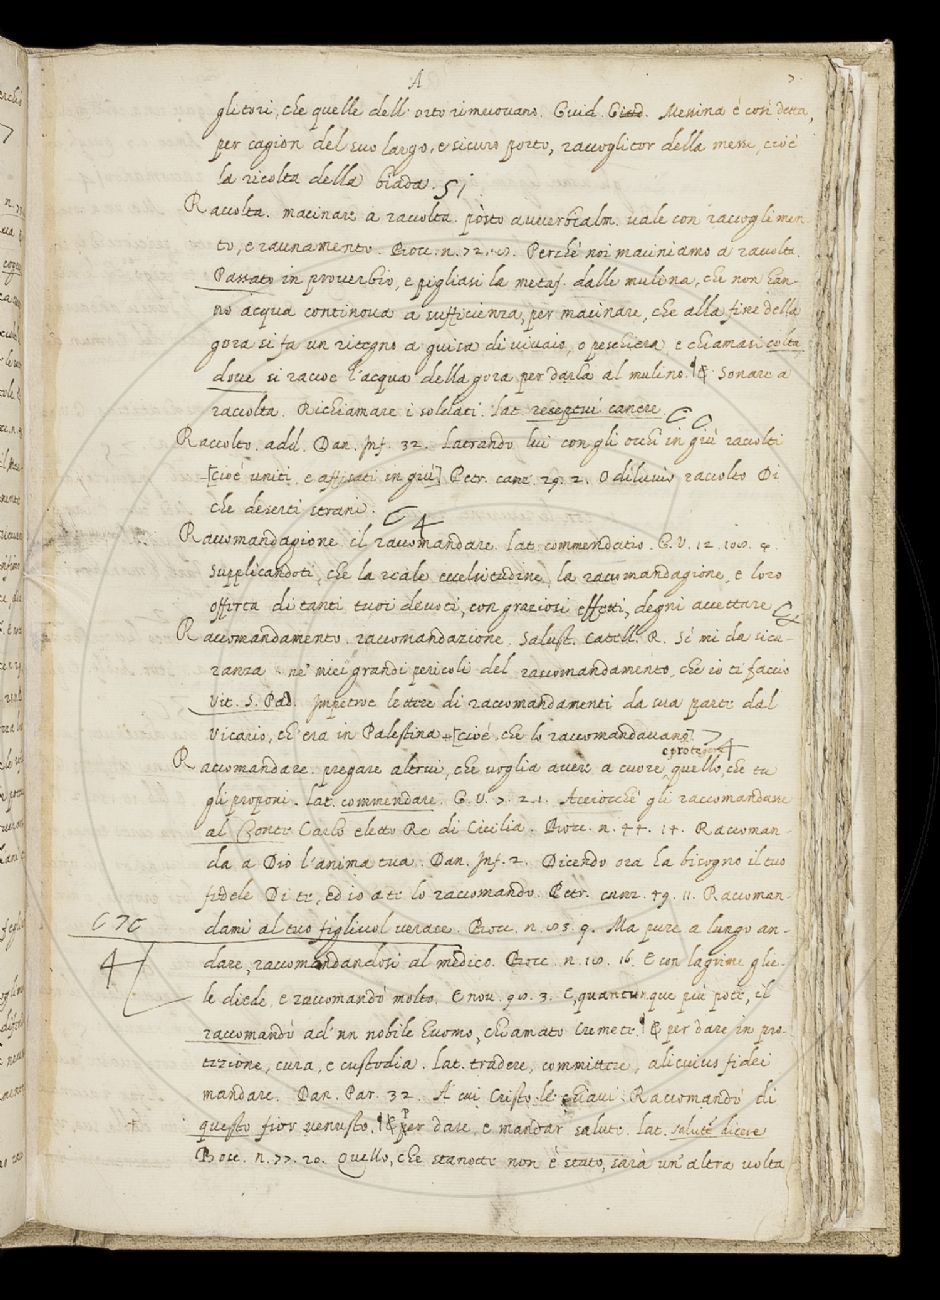 A
glitori, che quelle dell'orto rimuovano. Guid. Giud. Messina è così detta,
per cagion del suo largo, e sicuro porto, raccoglitor della messe, cioè
la ricolta della biada.
Raccolta. macinare a raccolta. posto avverbialm. vale con raccoglimen-
to, e raunamento. Bocc. n. 72. Perchè noi maciniamo a raccolta.
Passato in proverbio, e pigliasi la metaf. dalle mulina, che non han-
no acqua continova a sufficienza, per macinare, che alla fine della
gora si fa un ritegno a guisa di vivaio, o peschiera e chiamasi colta
dove si raccoe l'acqua della gora per darla al mulino. & Sonare a
raccolta. Richiamare i soldati. lat. receptui canere
Raccolto. add. Dan. Inf. 32. Latrando lui con gli occhi in giù raccolti
[cioè uniti e affisati in giù] Petr. canz. 29. 2. O diluvio raccolto Di
che deserti strani.
Raccomandagione il raccomandare. lat. commendatio. G. V. 12. 108. 4.
Supplicandoti, che la reale eccelsitudine, la raccomandagione, e loro
offerta di tanti tuoi devoti, con graziosi effetti, degni accettare
Raccomandamento. raccomandazione. Salust. Catell. R. Sì mi da sicu-
ranza ne' miei grandi pericoli del raccomandamento, che io ti faccio
Vit. S. Pad. Impetroe lettere di raccomandamenti da sua parte dal
Vicario, ch'era in Palestina [cioè, che lo raccomandavano]
e protezione
Raccomandare. pregare altrui, che voglia avere a cuore, quello, che tu
gli proponi. lat. commendare. G. V. 7. 21. Acciocchè gli raccomandasse
al Conte Carlo eletto Re di Cicilia. Bocc. n. 44. 14. Raccoman-
da a Dio l'anima tua. Dan. Inf. 2. Dicendo ora ha bisogno il tuo
fedele Di te, ed io a te lo raccomando. Petr. canz. 49. 11. Raccoman-
dami al tuo figliuol verace. Bocc. n. 9. Ma pure a lungo an-
dare, raccomandandosi al medico. Bocc. n. 16. E con lagrime glie-
le diede, e raccomandò molto. E nov. 3. E, quantunque più pote, il
raccomandò ad un nobile huomo, chiamato Cremete. & per dare in pro-
tezione, cura, e custodia. lat. tradere, committere, alicuius fidei
mandare. Dan. Par. 32. A cui Cristo le chiavi Raccomandò di
questo fior venusto. & per dare, e mandar salute. lat. salutē dicere
Bocc. n. 77. 20. Quello, che stanotte non è stato, sarà un'altra volta